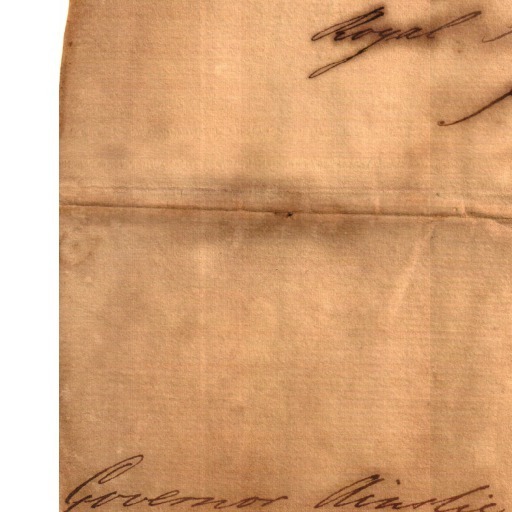 Royal
Governor Ainslie